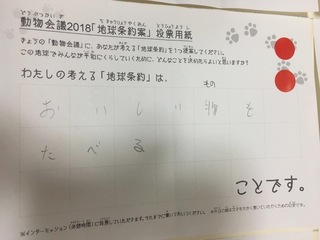 どうぶつかいぎ ちきゅうじょうやくあん とうひょうようし
動物会議2018「地球条約案」投票用紙
きょうの「動物会議」に、あなたが考える「地球条約」を1つ提案してください。
この地球でみんなが平和にくらしていくために、どんなことを決めたらよいと思いますか?
わたしの考える「地球条約」は、
もの
おいしい物を
たべる
ことです。